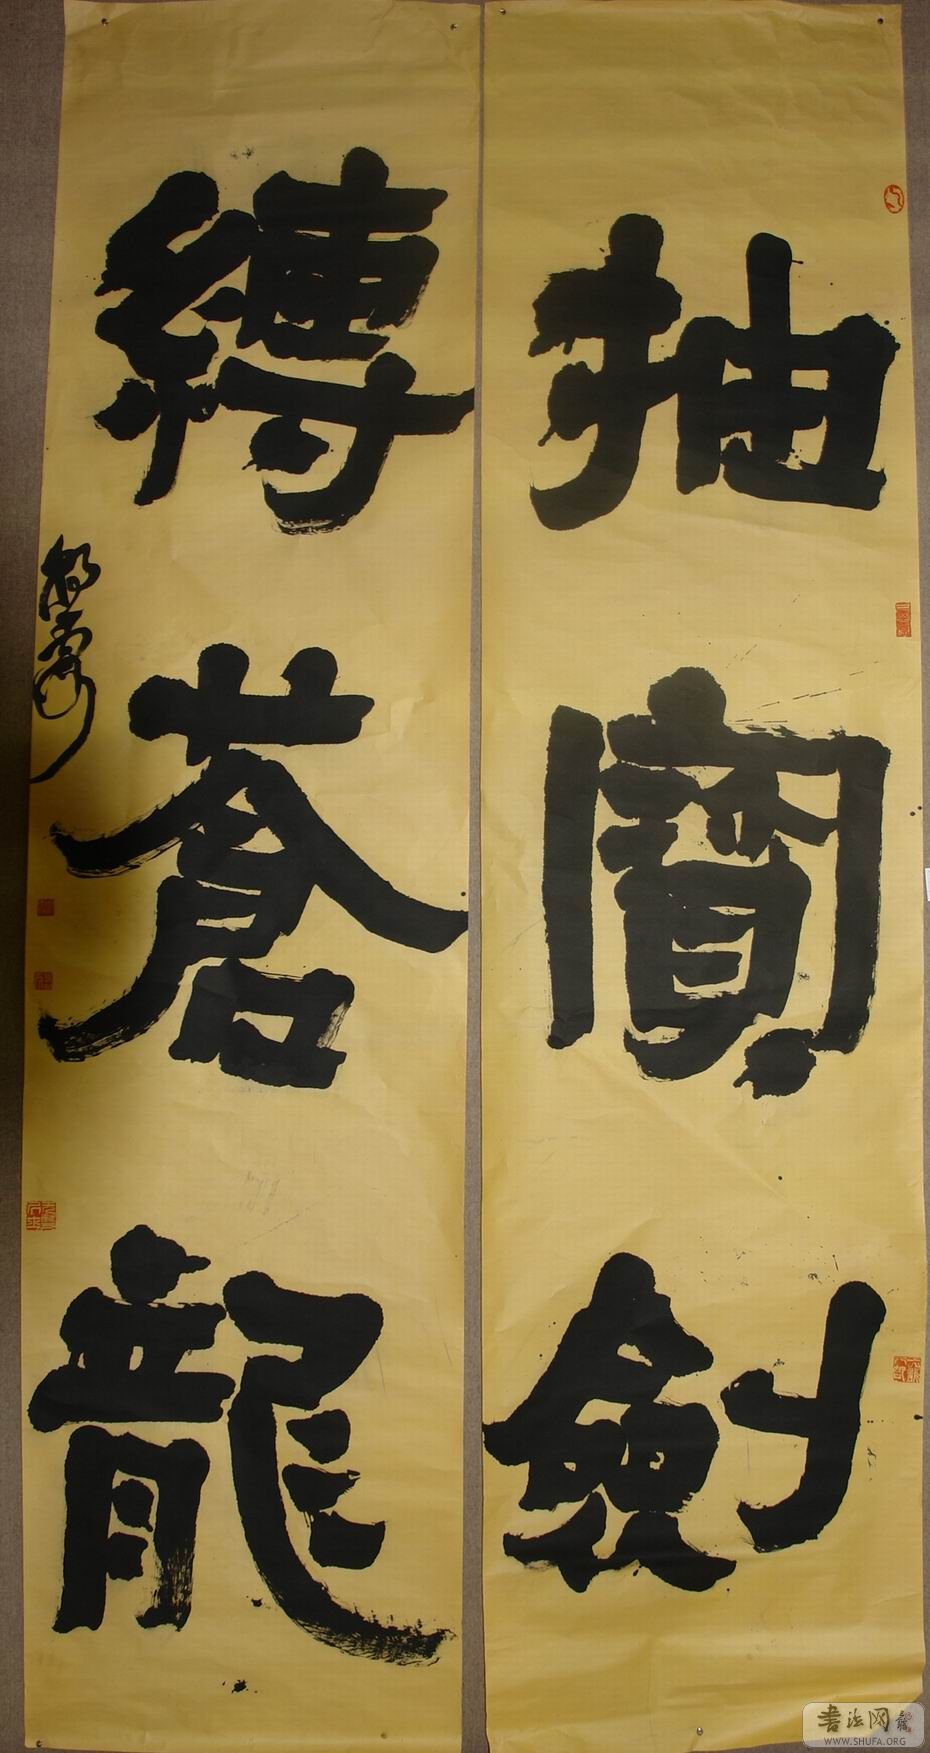 抽寳劍
縛蒼龍
書法网
WWW.SHUFA.ORG